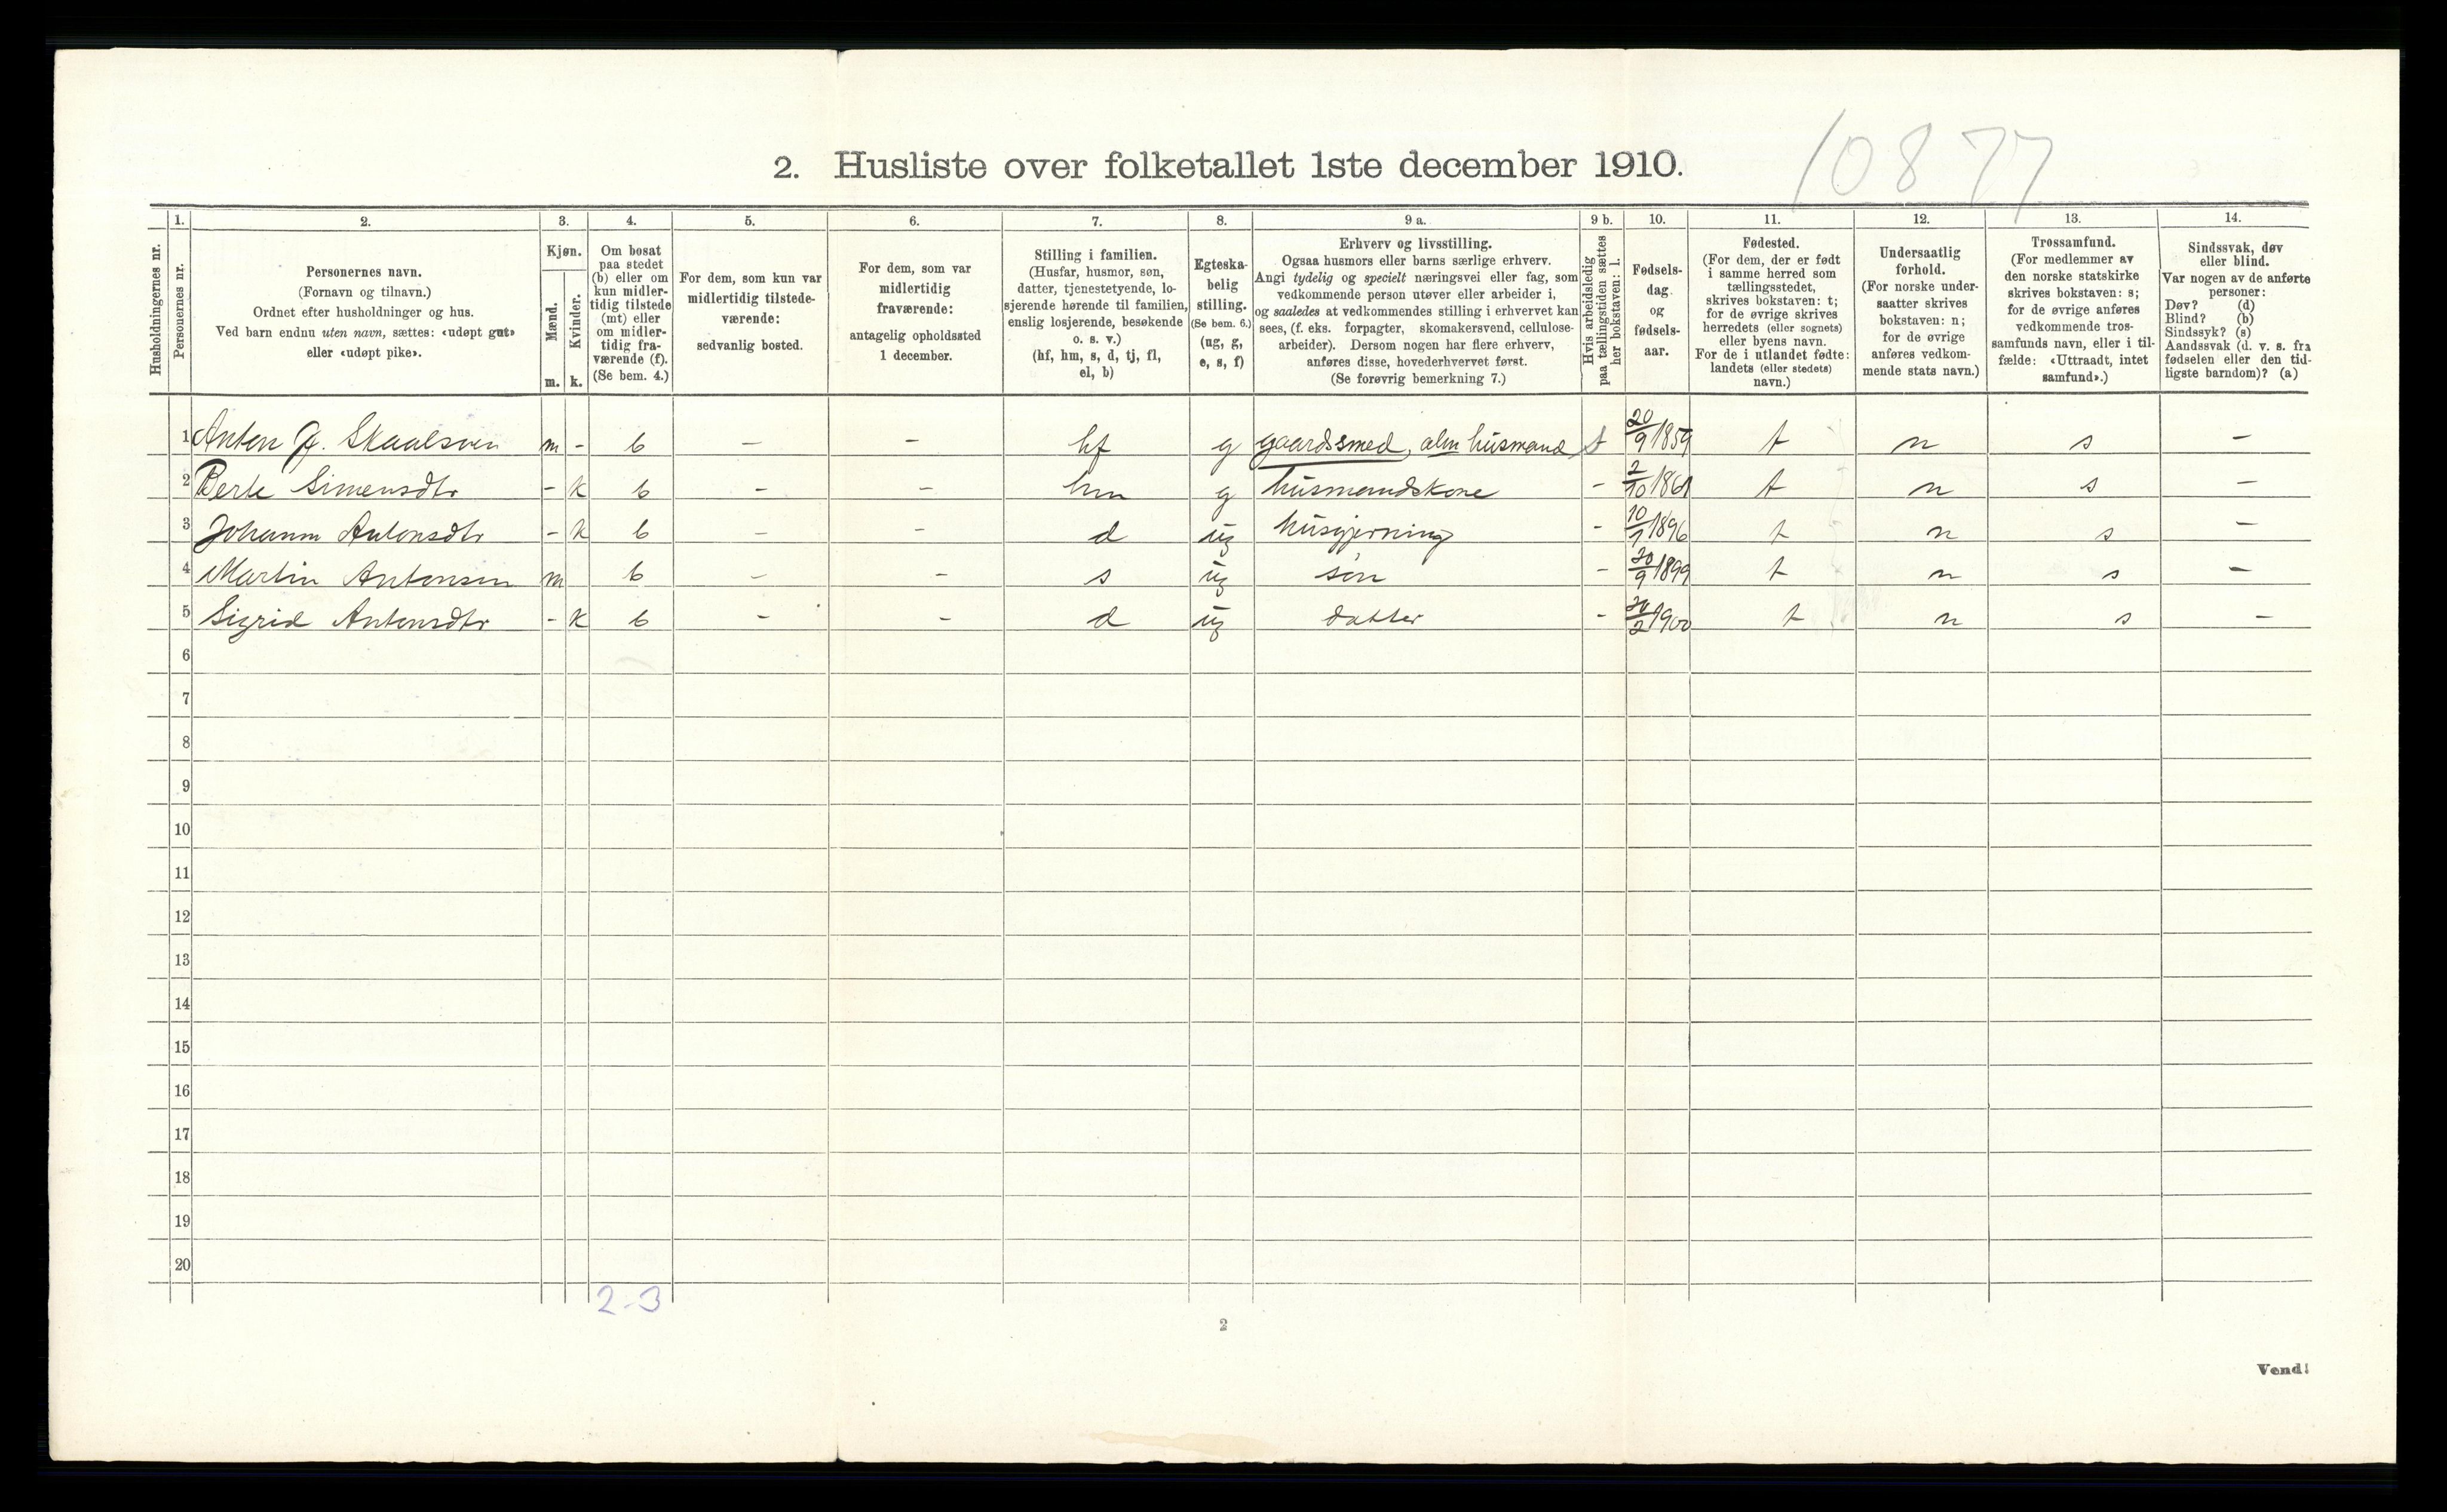 10877
2. Husliste over folketallet 1ste december 1910.
Husholdningernes nr.
1. Personernes nr.
2.
Personernes navn.
(Fornavn og tilnavn.)
Ordnet efter husholdninger og hus.
Ved barn endnu uten navn, sættes: «udøpt gut»
eller «udøpt pike».
3.
Kjøn.
Mænd. m.
Kvinder. k.
4.
Om bosat
paa stedet
(b) eller om
kun midler-
tidig tilstede
(mt) eller
om midler-
tidig fra-
værende (f).
(Se bem. 4.)
5.
For dem, som kun var
midlertidig tilstede-
værende:
sedvanlig bosted.
6.
For dem, som var
midlertidig
fraværende:
antagelig opholdssted
1 december.
7.
Stilling i familien.
(Husfar, husmor, søn,
datter, tjenestetyende, lo-
sjerende hørende til familien,
enslig losjerende, besøkende
o. s. v.)
(hf, hm, s, d, tj, fl,
el, b)
8.
Egteska-
belig
stilling.
(Se bem. 6.)
(ug, g,
e, s, f)
9 a.
Erhverv og livsstilling.
Ogsaa husmors eller barns særlige erhverv.
Angi tydelig og specielt næringsvei eller fag, som
vedkommende person utøver eller arbeider i,
og saaledes at vedkommendes stilling i erhvervet kan
sees, (f. eks. forpagter, skomakersvend, cellulose-
arbeider). Dersom nogen har flere erhverv,
anføres disse, hovederhvervet først.
(Se forøvrig bemerkning 7.)
9 b.
Hvis arbeidsledig
paa tællingstiden sættes
her bokstaven: l.
10.
Fødsels-
dag
og
fødsels-
aar.
11.
Fødested.
(For dem, der er født
i samme herred som
tællingsstedet,
skrives bokstaven: t;
for de øvrige skrives
herredets (eller sognets)
eller byens navn.
For de i utlandet fødte:
landets (eller stedets)
navn.)
12.
Undersaatlig
forhold.
(For norske under-
saatter skrives
bokstaven: n;
for de øvrige
anføres vedkom-
mende stats navn.)
13.
Trossamfund.
(For medlemmer av
den norske statskirke
skrives bokstaven: s;
for de øvrige anføres
vedkommende tros-
samfunds navn, eller i til-
fælde: «Uttraadt, intet
samfund».)
14.
Sindssvak, døv
eller blind.
Var nogen av de anførte
personer:
Døv? (d)
Blind? (b)
Sindssyk? (s)
Aandssvak (d. v. s. fra
fødselen eller den tid-
ligste barndom)? (a)
1 Anton G. Skaalsven m - b - - hf g gaardssmed, alm husmand 20/9 1859 t n s -
2 Berte Simensdtr - k b - - hm g husmandskone - 2/10 1861 t n s -
3 Johanne Antonsdtr - k b - - d ug husgjerning - 10/1 1896 t n s -
4 Martin Antonsen m b - - s ug søn - 30/9 1899 t n s -
5 Sigrid Antonsdtr - k b - - d ug datter - /2 1900 t n s -
6
7
8
9
10
11
12
13
14
15
16
17
18
19
20
2-3
2
Vend!